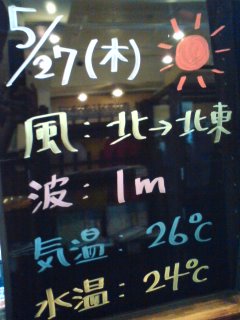 5/27(木)
風:北→北東
波:1m
気温:26℃
水温:24℃